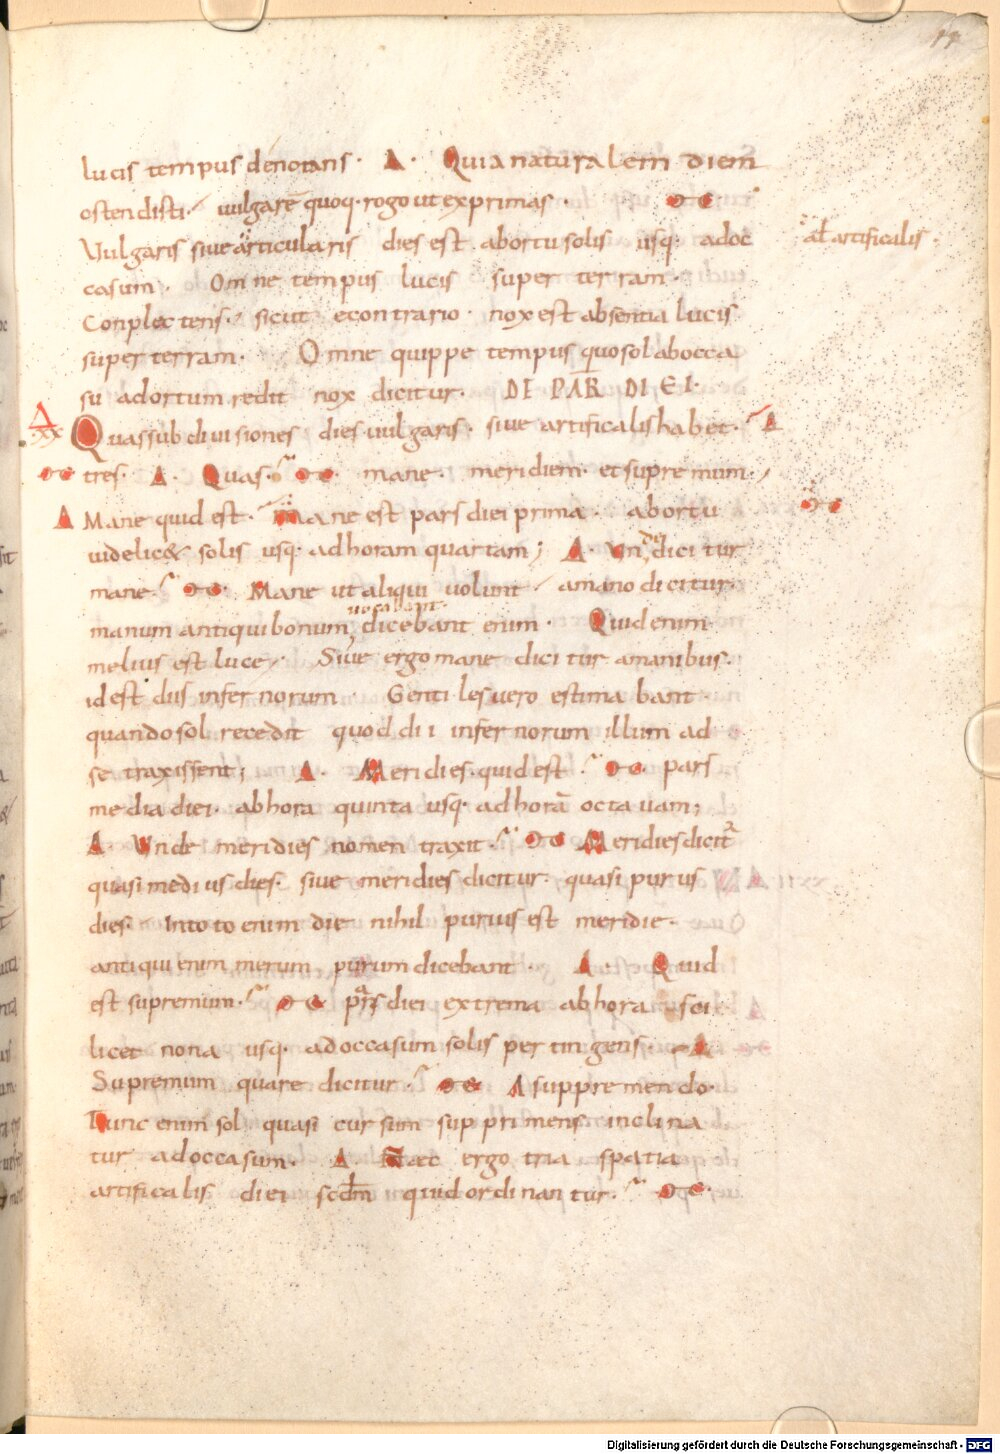 17
lucis tempus denotans · Δ · Quia naturalem diem
ostendisti · uulgarē quoq· rogo ut exprimas · ΜΘ
Vulgaris siue articularis dies est abortu solis usq· adoc
aƚ artificalis ·
casum · Omne tempus lucis super terram ·
Conplectens · sicut econtrario · nox est absentia lucis
super terram · Omne quippe tempus quo sol abocca
su adortum redit nox dicitur · DE PAR DIEI ·
XX Quas subdiuisiones dies uulgaris · siue artificalis habet · Δ
tres · Δ · Quas · mane · meridiem · et supremum ·
Δ Mane quid est · Mane est pars diei prima · abortu
uidelic& solis usq· ad horam quartam ; Δ · Vnde dicitur
mane · Mane ut aliqui uolunt amano dicitur ·
uocabant
manum antiqui bonum dicebant enim · Quid enim
melius est luce · Siue ergo mane dicitur amanibus ·
id est diis infernorum · Gentiles uero estimabant ·
quando sol recedit quod dii infernorum illum ad
se traxissent ; Δ · Meridies quid est · pars
media diei · ab hora quinta usq· ad horā octauam ;
Δ · Vnde meridies nomen traxit · Meridies dicit
quasi medius dies · siue meridies dicitur · quasi purus
dies · In toto enim die nihil purius est meridie ·
antiqui enim merum purum dicebant · Δ · Quid
est supremum · pars diei extrema ab hora sci
licet nona usq· adoccasum solis pertingens · Δ
Supremum quare dicitur · A suppremendo ·
Tunc enim sol quasi cursum supprimens inclina
tur adoccasum · Δ · Haec ergo tria spatia
artificalis diei scdm̄ quid ordinantur ·
Digitalisierung gefördert durch die Deutsche Forschungsgemeinschaft · DFG